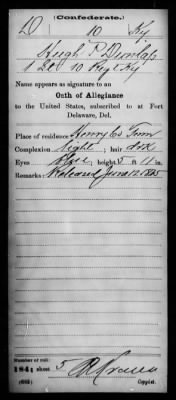 (Confederate.)
D 10 Ky
Hugh P Dunlap
1 Lt 10 Regt Ky
Name appears as signature to an
Oath of Allegiance
to the United States, subscribed to at Fort
Delaware, Del.
Place of residence Henry Co Tenn
Complexion light; hair dok
Eyes blue; height 5 ft. 11 in.
Remarks: Released June 12 1865
Number of roll:
184; sheet 5
(635) Copyist.